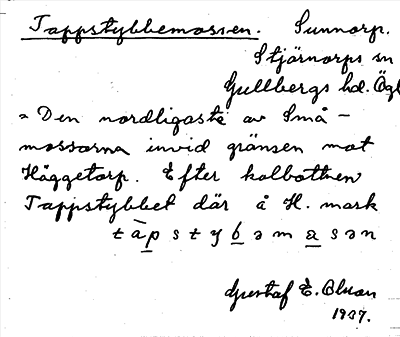 Tappstybbemossen. Sunnorp.
Stjärnorps sn
Gullbergs hd. Ögl
= Den nordligaste av Små-
mossarna invid gränsen mot
Häggetorp. Efter kolbottnen
Tappstybbet där å H. mark
tàpstybəmasən
Gustaf E. Olson
1937.